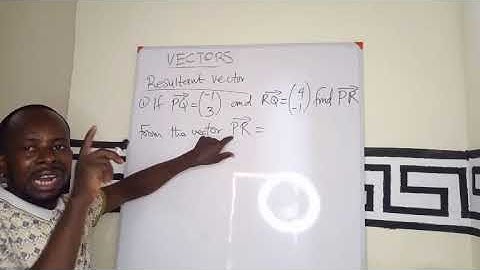 VECTORS
Resultant vector
① If PQ⃗ = (-1 3) and RQ⃗ = (4 -1) find PR⃗
From the vector PR⃗ =